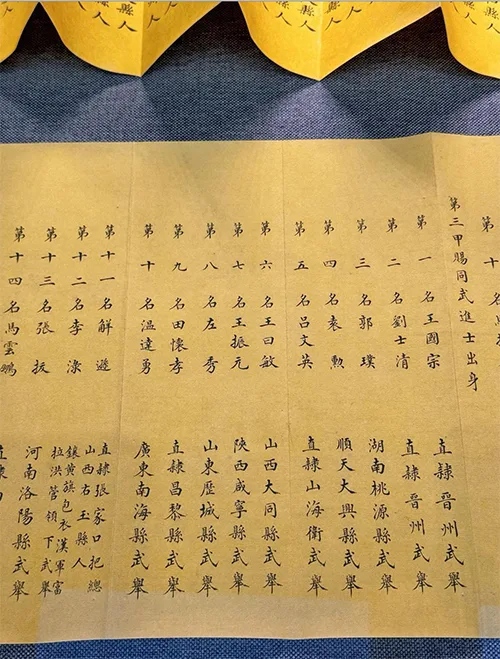 第三甲賜同武進士出身
第一名王國宗 直隸晉州武舉
第二名劉士清 直隸晉州武舉
第三名郭璞 湖南桃源縣武舉
第四名袁勲 順天大興縣武舉
第五名呂文英 直隸山海衛武舉
第六名王曰敏 山西大同縣武舉
第七名王振元 陝西咸寧縣武舉
第八名左秀 山東歷城縣武舉
第九名田懷孝 直隸昌黎縣武舉
第十名温達勇 廣東南海縣武舉
第十一名解 直隸張家口把總
山西右玉縣人
第十二名李 鑲黃旗包衣漢軍富
拉洪管領下武舉
第十三名張 河南洛陽縣武舉
第十四名馬雲鵬 直隸